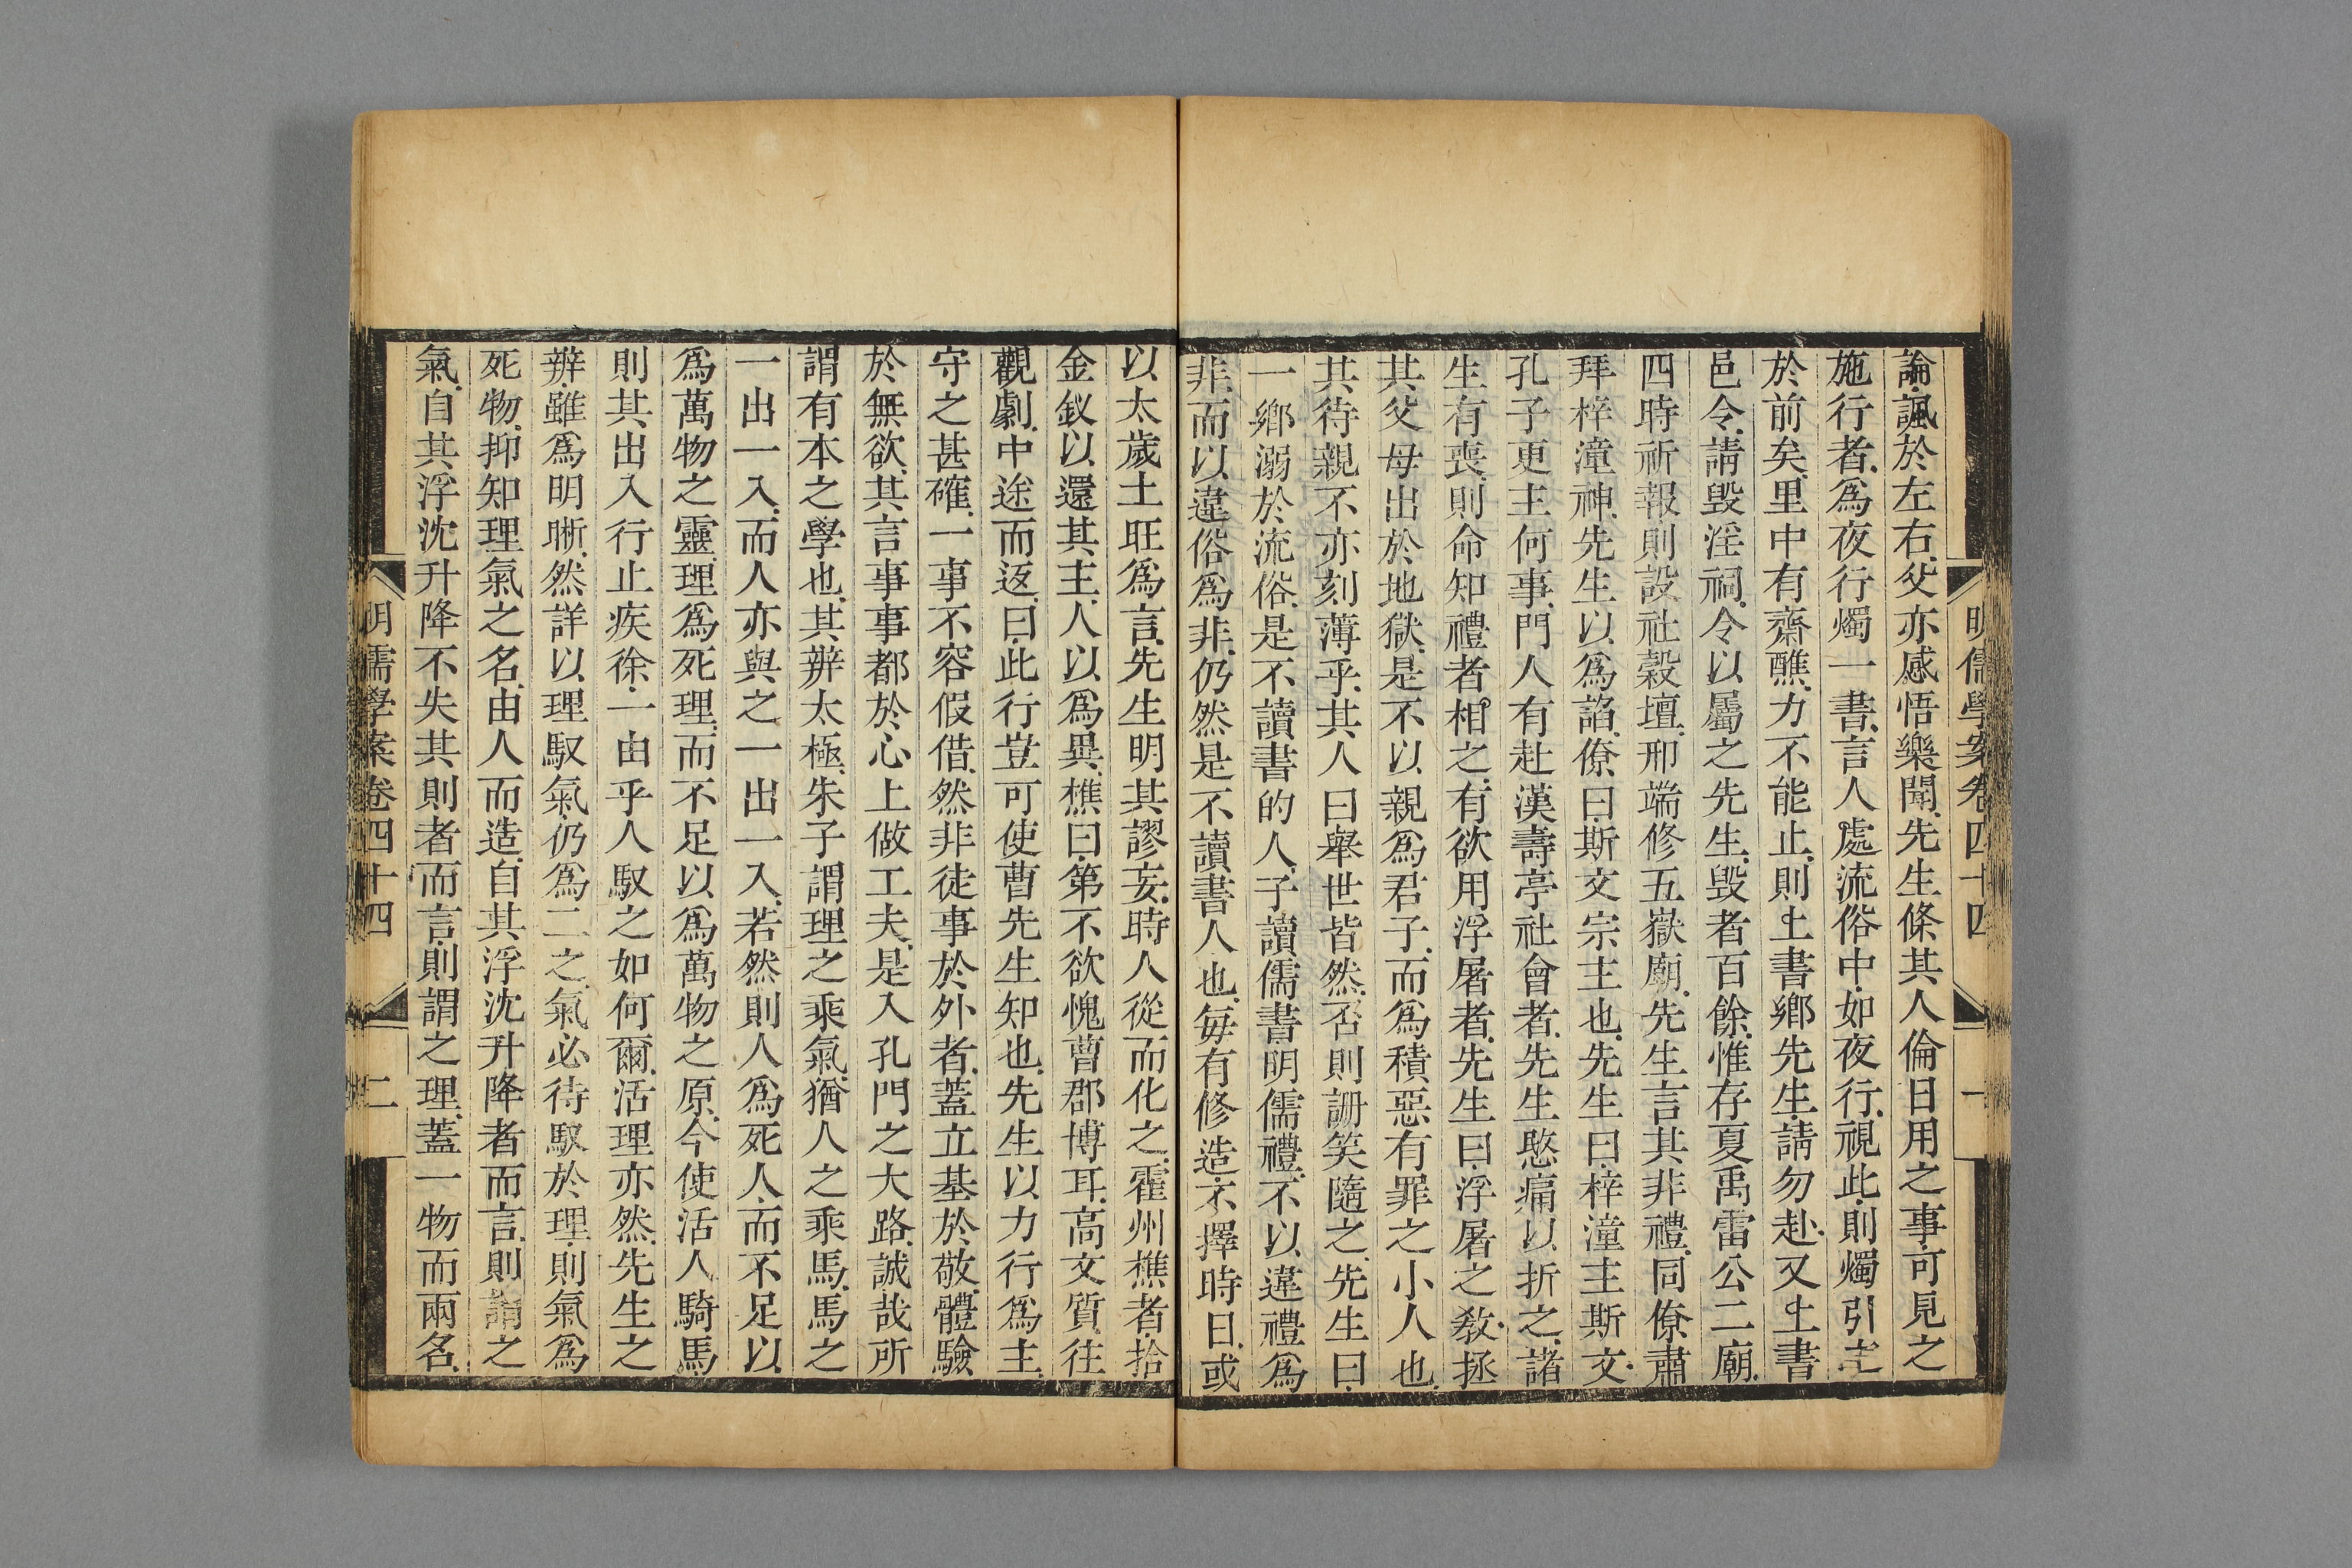 明儒學案卷四十四
一
論諷於左右父亦感悟樂聞先生條其人倫日用之事可見之
施行者爲夜行燭一書言人處流俗中如夜行視此則燭引之
於前矣里中有齋醮力不能止則上書鄉先生請勿赴又上書
邑令請毁淫祠令以屬之先生毁者百餘惟存夏禹雷公二廟
四時祈報則設社穀壇邢端修五嶽廟先生言其非禮同僚肅
拜梓潼神先生以爲諂僚曰斯文宗主也先生曰梓潼主斯文
孔子更主何事門人有赴漢壽亭社會者先生愍痛以折之諸
生有喪則命知禮者相之有欲用浮屠者先生曰浮屠之教拯
其父母出於地獄是不以親爲君子而爲積惡有罪之小人也
其待親不亦刻薄乎其人曰舉世皆然否則訕笑隨之先生曰
一鄉溺於流俗是不讀書的人子讀儒書明儒禮不以違禮爲
非而以違俗爲非仍然是不讀書人也每有修造不擇時日或
以太歲土旺爲言先生明其謬妄時人從而化之霍州樵者拾
金釵以還其主人以爲異樵曰第不欲愧曹郡博耳高文質往
觀劇中途而返曰此行豈可使曹先生知也先生以力行爲主
守之甚確一事不容假借然非徒事於外者蓋立基於敬體驗
於無欲其言事事都於心上做工夫是入孔門之大路誠哉所
謂有本之學也其辨太極朱子謂理之乘氣猶人之乘馬馬之
一出一入而人亦與之一出一入若然則人爲死人而不足以
爲萬物之靈理爲死理而不足以爲萬物之原今使活人騎馬
則其出入行止疾徐一由乎人馭之如何爾活理亦然先生之
辨雖爲明晰然詳以理馭氣仍爲二之氣必待馭於理則氣爲
死物抑知理氣之名由人而造自其浮沈升降者而言則謂之
氣自其浮沈升降不失其則者而言則謂之理蓋一物而兩名
明儒學案卷四十四
二